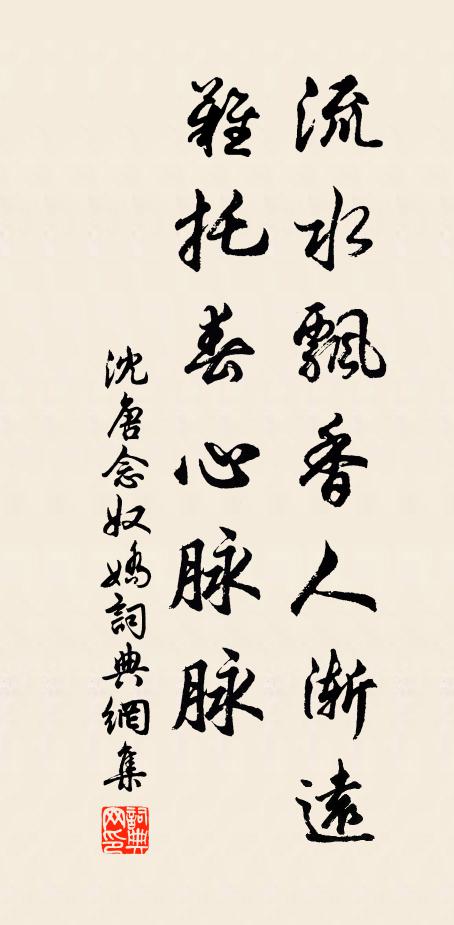 流水飄香人漸遠
難托春心脉脉
沈唐念奴嬌詞典網集
詞典网印